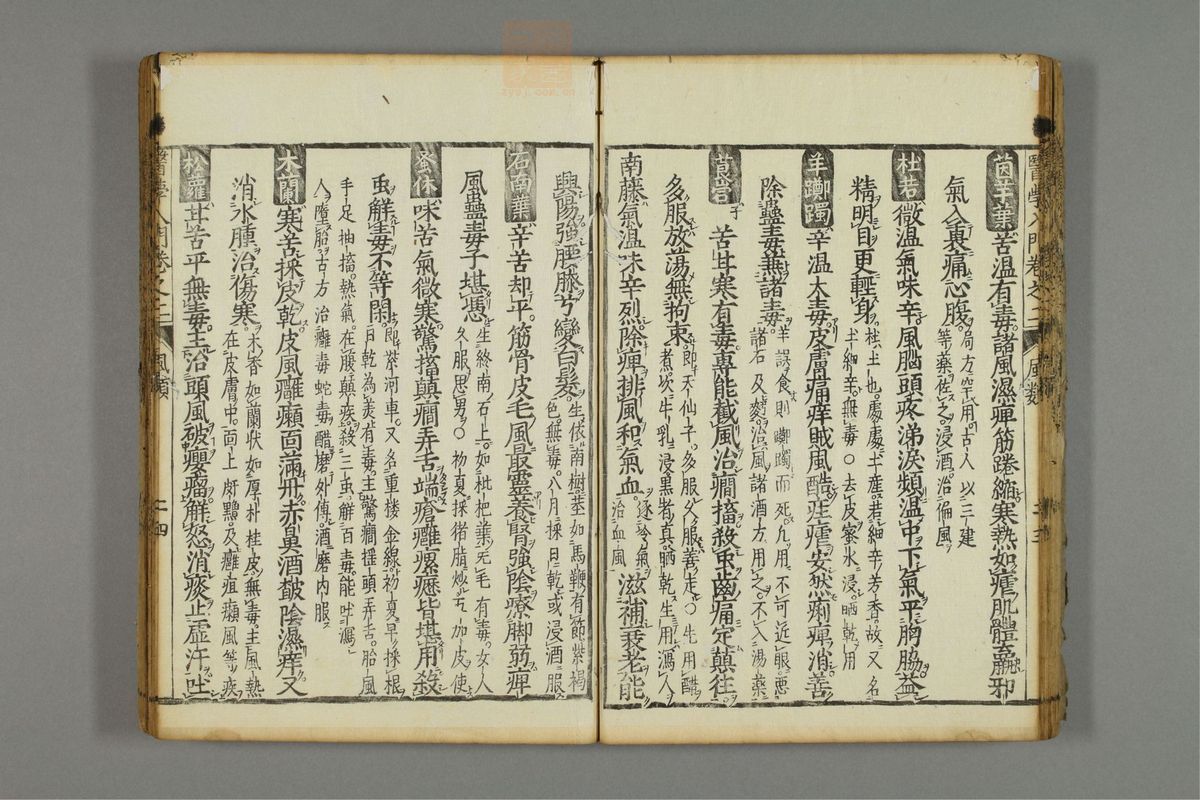 茵芋葉 苦溫有毒諸風濕痺筋踡縮寒熱如瘧肌體羸邪
氣入裏痛心腹 局方罕用古人以三建
等藥佐之浸酒治偏風
杜若 微溫氣味辛風腦頭疼涕淚頻溫中下氣平胸脇益
精明目更輕身 杜土也處處土產若細辛芳香故又名
土細辛無毒○去皮蜜水浸晒乾用
羊躑躅 辛溫大毒皮膚痛痒賊風酷疰瘧安然痢痺消善
除蠱毒兼諸毒 羊誤食則躑躅而死凡用不可近眼惡
諸石及麵治風諸酒方用之不入湯藥
莨菪子 苦甘寒有毒專能截風治癇搐殺虫齒痛定顛狂
多服放蕩無拘束 即天仙子多服久服善走○先用醋
煮次牛乳浸黑者真晒乾生用瀉人
南藤氣溫味辛烈除痺排風和氣血 逐冷氣
治血風 滋補衰老能
興陽強腰膝兮變白髮 生依南樹莖如馬鞭有節紫褐
色無毒八月採日乾或浸酒服
石南葉 辛苦却平筋骨皮毛風最靈養腎強陰療脚弱痺
風蠱毒子堪憑 生終南石上如枇杷葉无毛有毒女人
久服思男○初夏採猪脂炒五加皮使
蚤休 味苦氣微寒驚搐癲癇弄舌端瘡癰瘰癧皆堪用殺
虫解毒不等閑 即紫河車又名重樓金線初夏早採根
日乾為炭有毒主驚癇搖頭弄舌胎風
手足抽搐熱氣在腹顛疾殺三虫解百毒能吐瀉
人墮胎古方治癰毒蛇毒醋磨外傅酒磨内服
木蘭 寒苦採皮乾皮風癰癩面滿舟赤鼻酒皶陰濕痒又
消水腫治傷寒 木香如蘭狀如厚朴桂皮無毒主風熱
在皮膚中面上䵟黯及癰疽癩風等疾
松蘿 甘苦平無毒主治頭風破癭瘤解怒消痰止虛汗吐
醫學入門卷之二 風類 二四
醫學入門卷之二 風類